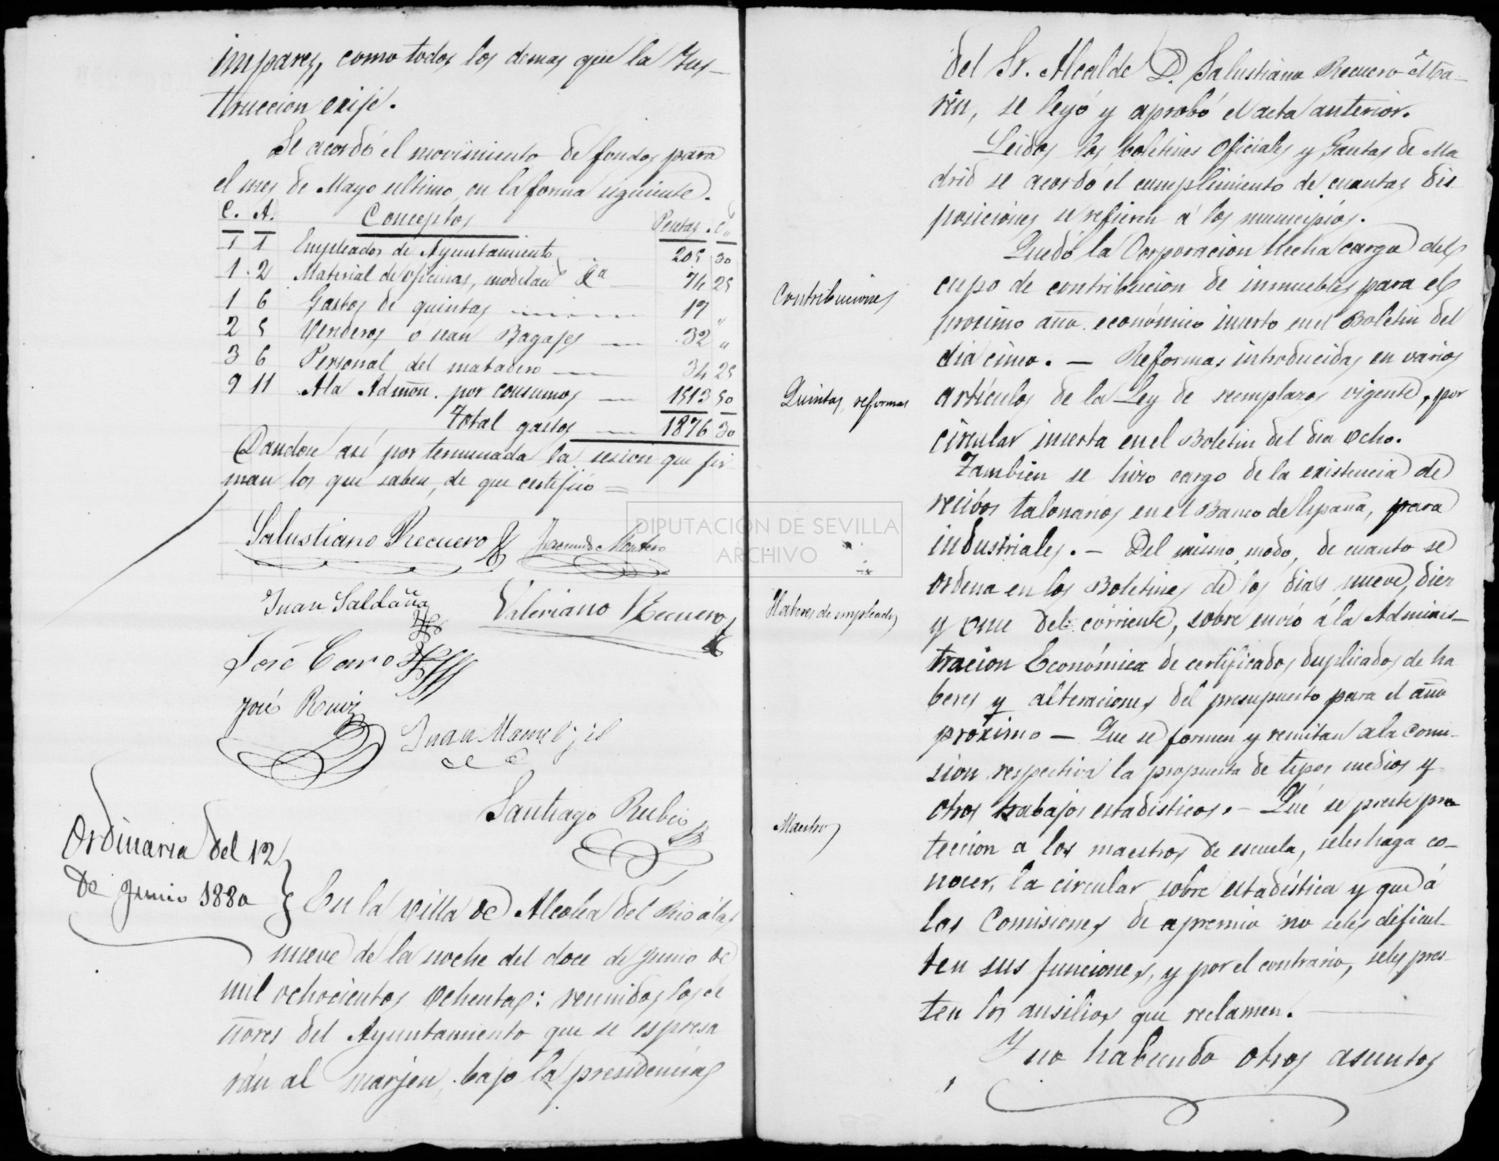 impares, como todos los demas que la Yns-
truccion exije.
Se acordó el movimiento de fondos para
el mes de Mayo ultimo en la forma siguiente.
C. A. Conceptos Pesetas Cs
1 1 Empleados de Ayuntamiento 205 30
1 2 Material de oficinas, modelacn &a 74 25
1 6 Gastos de quintas 17 "
2 5 Venderos o sean Bagajes 32 "
3 6 Personal del matadero 34 25
9 11 A la Admon. por consumos 1513 50
Total gastos 1876 30
Dandose así por terminada la sesion que fir
man los que saben, de que certifico =
Salustiano Recuero
Juan Saldaña
Valeriano Recuero
José Caro
José Ruiz
Juan Manuel Gil
Santiago Rubio
Ordinaria del 12
de Junio 1880
En la villa de Alcolea del Rio á las
nueve de la noche del doce de Junio de
mil ochocientos ochenta: reunidos los se
ñores del Ayuntamiento que se espresa
rán al marjen, bajo la presidencia
del Sr. Alcalde D. Salustiano Recuero Ma-
rin, se leyó y aprobó el acta anterior.
Leidos los boletines Oficiales y Gacetas de Ma
drid se acordo el cumplimiento de cuantas dis
posiciones se refieren á los municipios.
Contribuciones
Quedó la Corporacion hecha cargo del
cupo de contribucion de inmuebles para el
procimo año económico inserto en el Boletin del
dia cinco. — Reformas introducidas en varios
Quintas, reformas
artículos de la Ley de reemplazos vigente, por
circular inserta en el Boletin del dia ocho.
Tambien se hizo cargo de la existencia de
recibos talonarios en el Banco de España, para
industriales. — Del mismo modo, de cuanto se
Haberes de empleados
ordena en los Boletines de los dias nueve, diez
y once del corriente, sobre envió á la Adminis-
tracion Económica de certificados duplicados de ha
beres y alteraciones del presupuesto para el año
próximo — Que se formen y remitan a la comi-
sion respectiva la propuesta de tipos medios y
otros trabajos estadisticos. — Que se preste pro
Maestros
teccion a los maestros de escuela, seles haga co-
nocer, la circular sobre estadística y que á
las Comisiones de apremio no seles dificul-
ten sus funciones, y por el contrario, seles pres-
ten los ausilios que reclamen.
Y no habiendo otros asuntos
DIPUTACIÓN DE SEVILLA
ARCHIVO